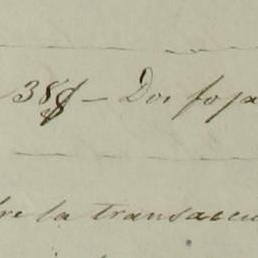 38$ — Dos foja
re la transacci